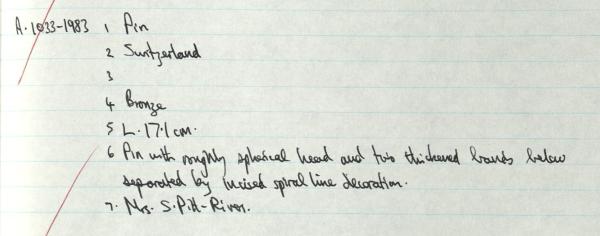 A. 1033-1983 1 Pin
2 Switzerland
3
4 Bronze
5 L. 17.1 cm.
6 Pin with roughly spherical head and two thickened bands below
separated by incised spiral line decoration.
7. Mrs. S. Pitt-Rivers.